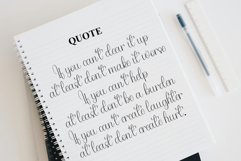 QUOTE
If you can't clear it up
at least don't make it worse
If you can't help
at least don't be a burden
If you can't create laughter
at least don't create hurt.